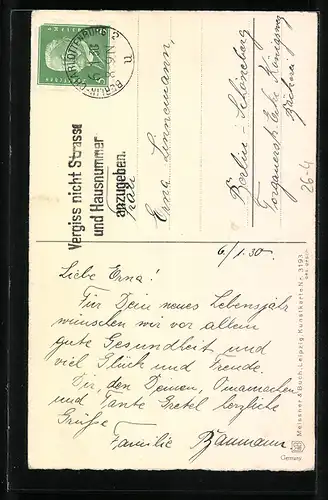 BERLIN-CHARLOTTENBURG 2
Vergiss nicht Strasse
und Hausnummer
anzugeben.
Frau
Erna Linnemann,
Berlin-Schöneberg
Torgauerstr. Ecke Königsweg
Bäckerei
26-4
6/1.30.
Liebe Erna!
Für Dein neues Lebensjahr
wünschen wir vor allem
gute Gesundheit und
viel Glück und Freude.
Dir, den Deinen, Omamachen
und Tante Gretel herzliche
Grüße
Familie Baumann.
Meissner & Buch, Leipzig, Kunstkarte Nr. 3193
Germany